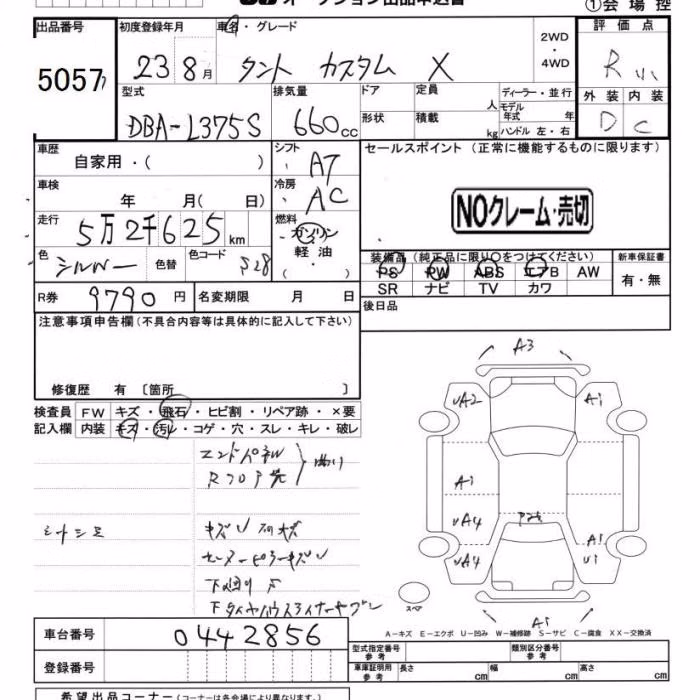 オークション出品申込書
①会場控
出品番号
5057
初度登録年月
23 8月
車名・グレード
タント カスタム X
2WD
・
4WD
評価点
R
外装 内装
D C
型式
DBA-L375S
排気量
660cc
ドア
形状
定員 人
積載 kg
ディーラー・並行
モデル年式 年
ハンドル 左・右
車歴
自家用・( )
シフト
AT
車検
年 月( 日)
冷房
AC
走行
5万2千625km
燃料
ガソリン
軽油
・( )
色
シルバー
色替
色コード
S28
R券 9790円
名変期限 月 日
セールスポイント (正常に機能するものに限ります)
NOクレーム・売切
装備品(純正品に限り○をつけてください)
PS PW ABS エアB AW
SR ナビ TV カワ
新車保証書
有・無
後日品
注意事項申告欄(不具合内容等は具体的に記入して下さい)
修復歴 有 〔箇所 〕
検査員記入欄
FW キズ・飛石・ヒビ割・リペア跡・×要
内装 キズ・汚レ・コゲ・穴・スレ・キレ・破レ
エンドパネル
Rフロア先
曲り
A3
UA2
A1
A1
UA4
UA4
A1
U1
A1
スペア
A-キズ E-エクボ U-凹み W-補修跡 S-サビ C-腐食 XX-交換済
車台番号
0442856
登録番号
型式指定番号
参考
類別区分番号
参考
車庫証明用
参考
長さ cm
幅 cm
高さ cm
希望出品コーナー(コーナーは各会場により異なります。)